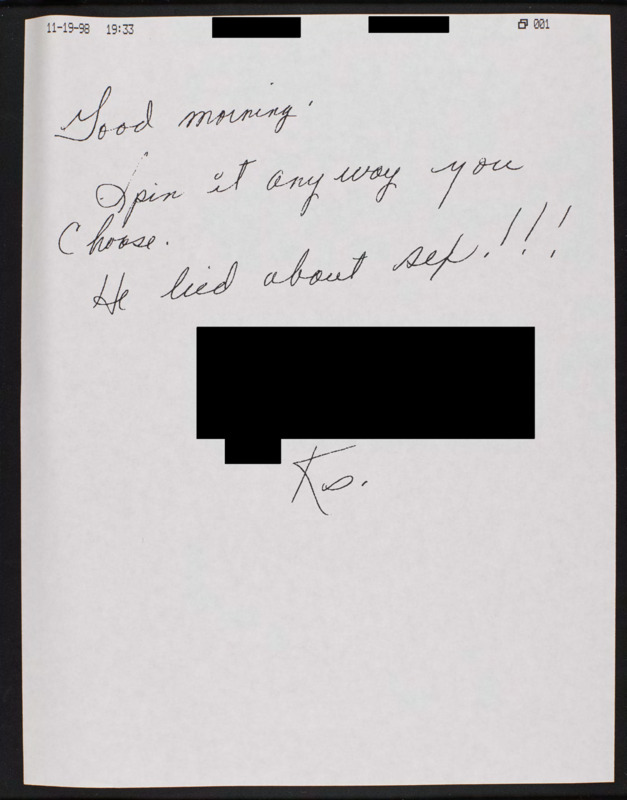 11-19-98 19:33 001
Good morning.
Spin it any way you
Choose.
He lied about sex.!!!
Ks.